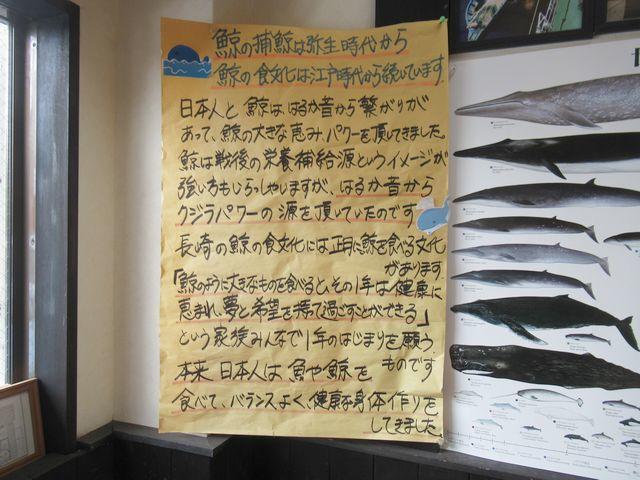 鯨の捕鯨は弥生時代から
鯨の食文化は江戸時代から続いています
日本人と鯨は、はるか昔から繋がりが
あって、鯨の大きな恵みパワーを頂してきました。
鯨は戦後の栄養補給源というイメージが
強い方もいらっしゃいますが、はるか昔から
クジラパワーの源を頂いていたのです
長崎の鯨の食文化には正月に鯨を食べる文化
があります
「鯨のように大きなものを食べると、その1年は健康に
恵まれ、夢と希望を持って過ごすことができる」
という家族みんなで1年のはじまりを願う
ものです
本来 日本人は魚や鯨を
食べて、バランスよく、健康な身体作りを
してきました